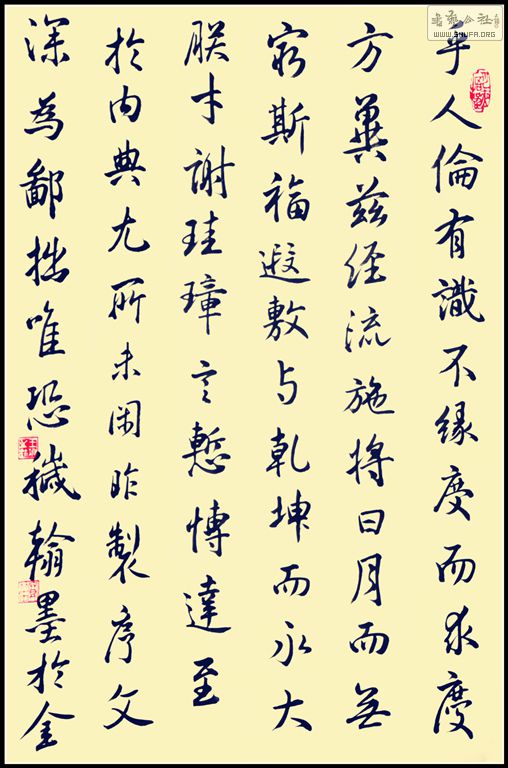 乎人倫有識不緣慶而求慶
方冀茲經流施將日月而無
窮斯福遐敷與乾坤而永大
朕才謝珪璋言慙博達至
於內典尤所未閑昨製序文
深為鄙拙唯恐穢翰墨於金
WWW.SHUFA.ORG